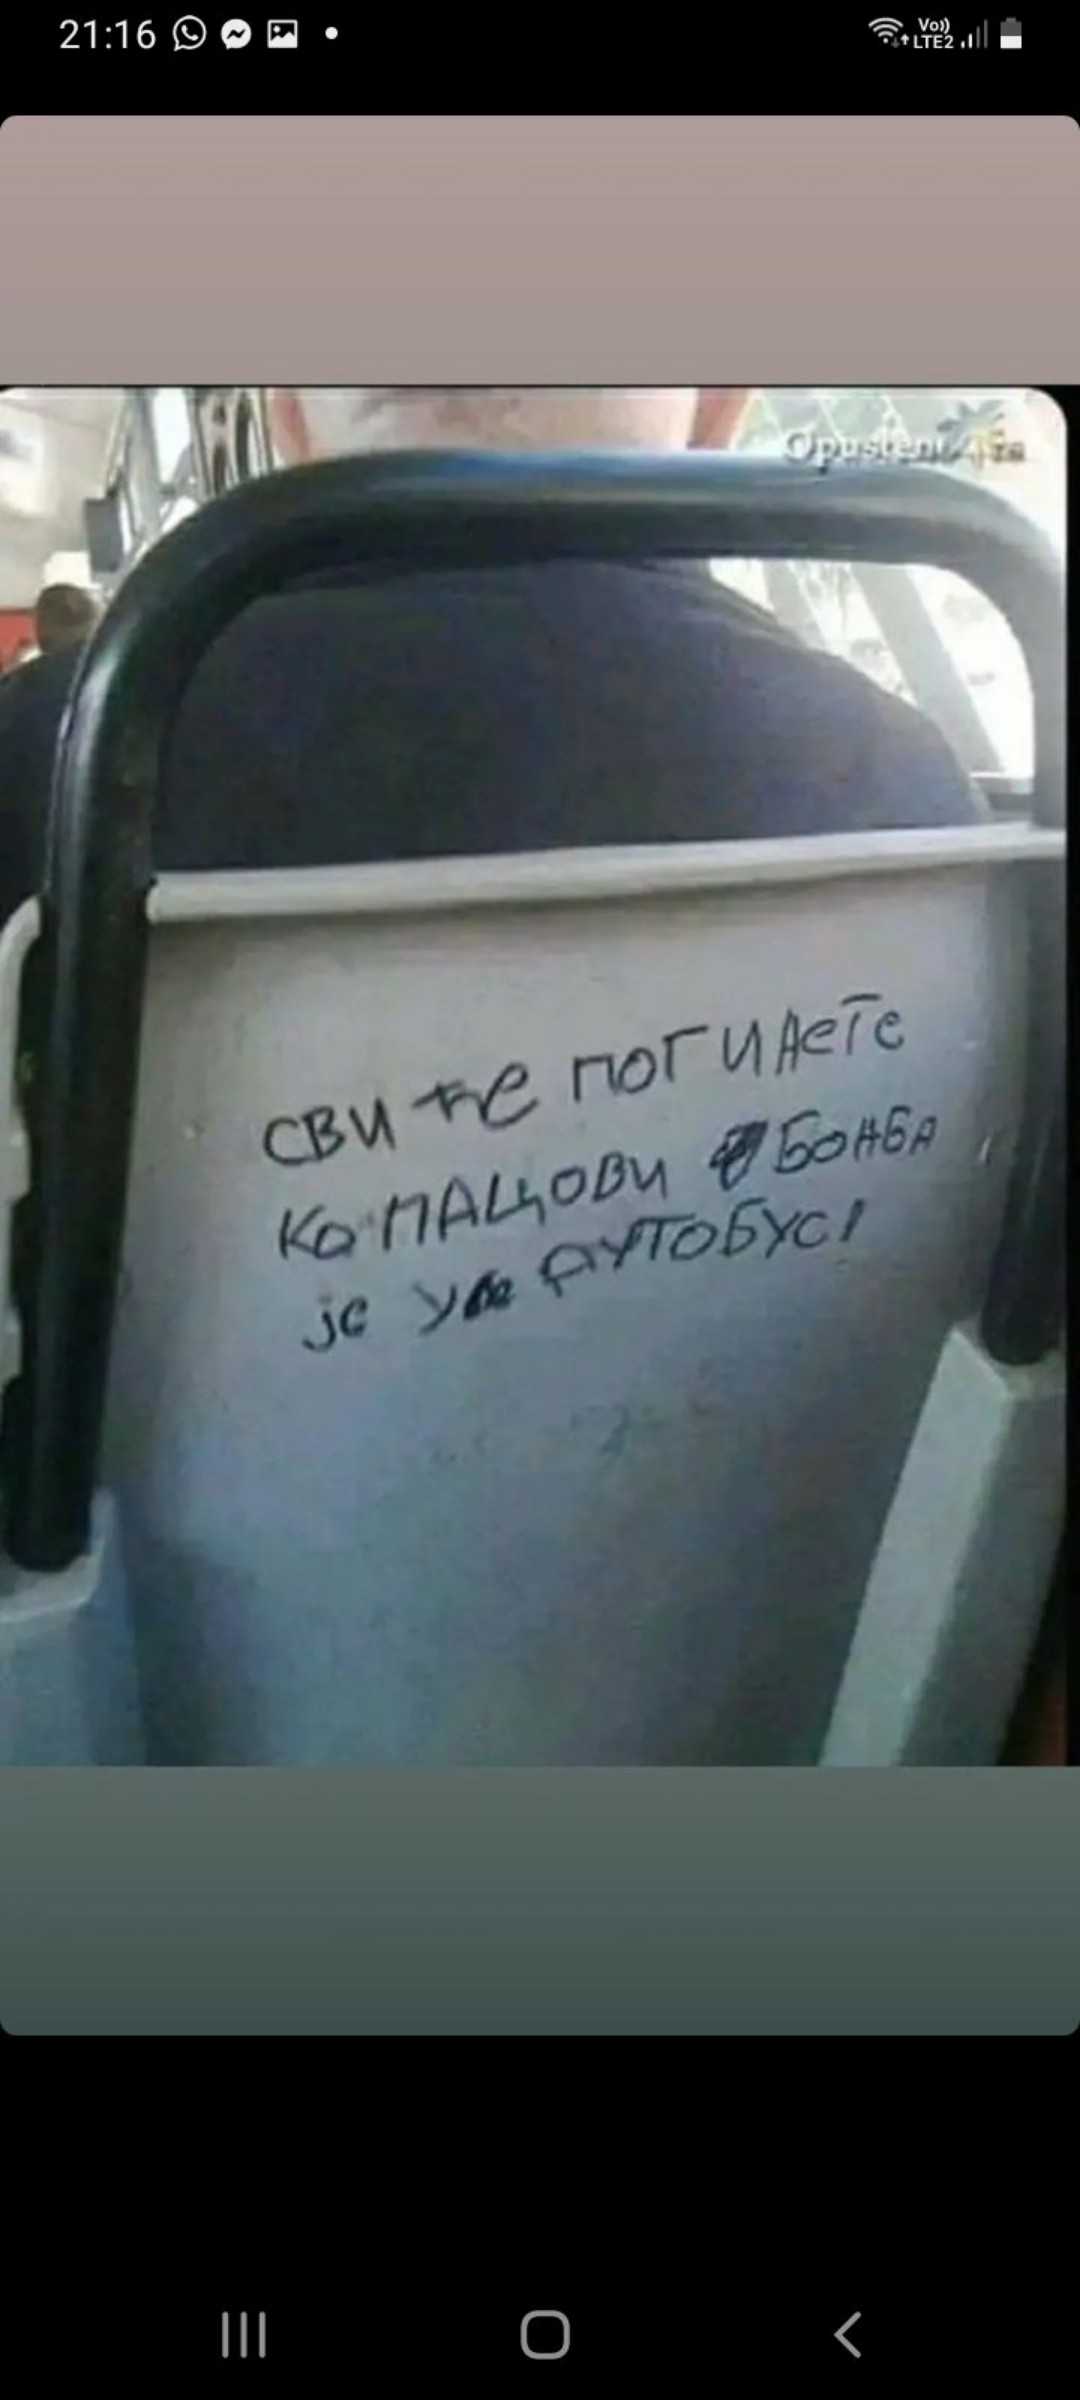 21:16
Vo))
LTE2
Opusteno
СВИ ЋЕ ПОГИНЕТЕ
КОПАЦОВИ БОНБА
ЈЕ У АУТОБУС!